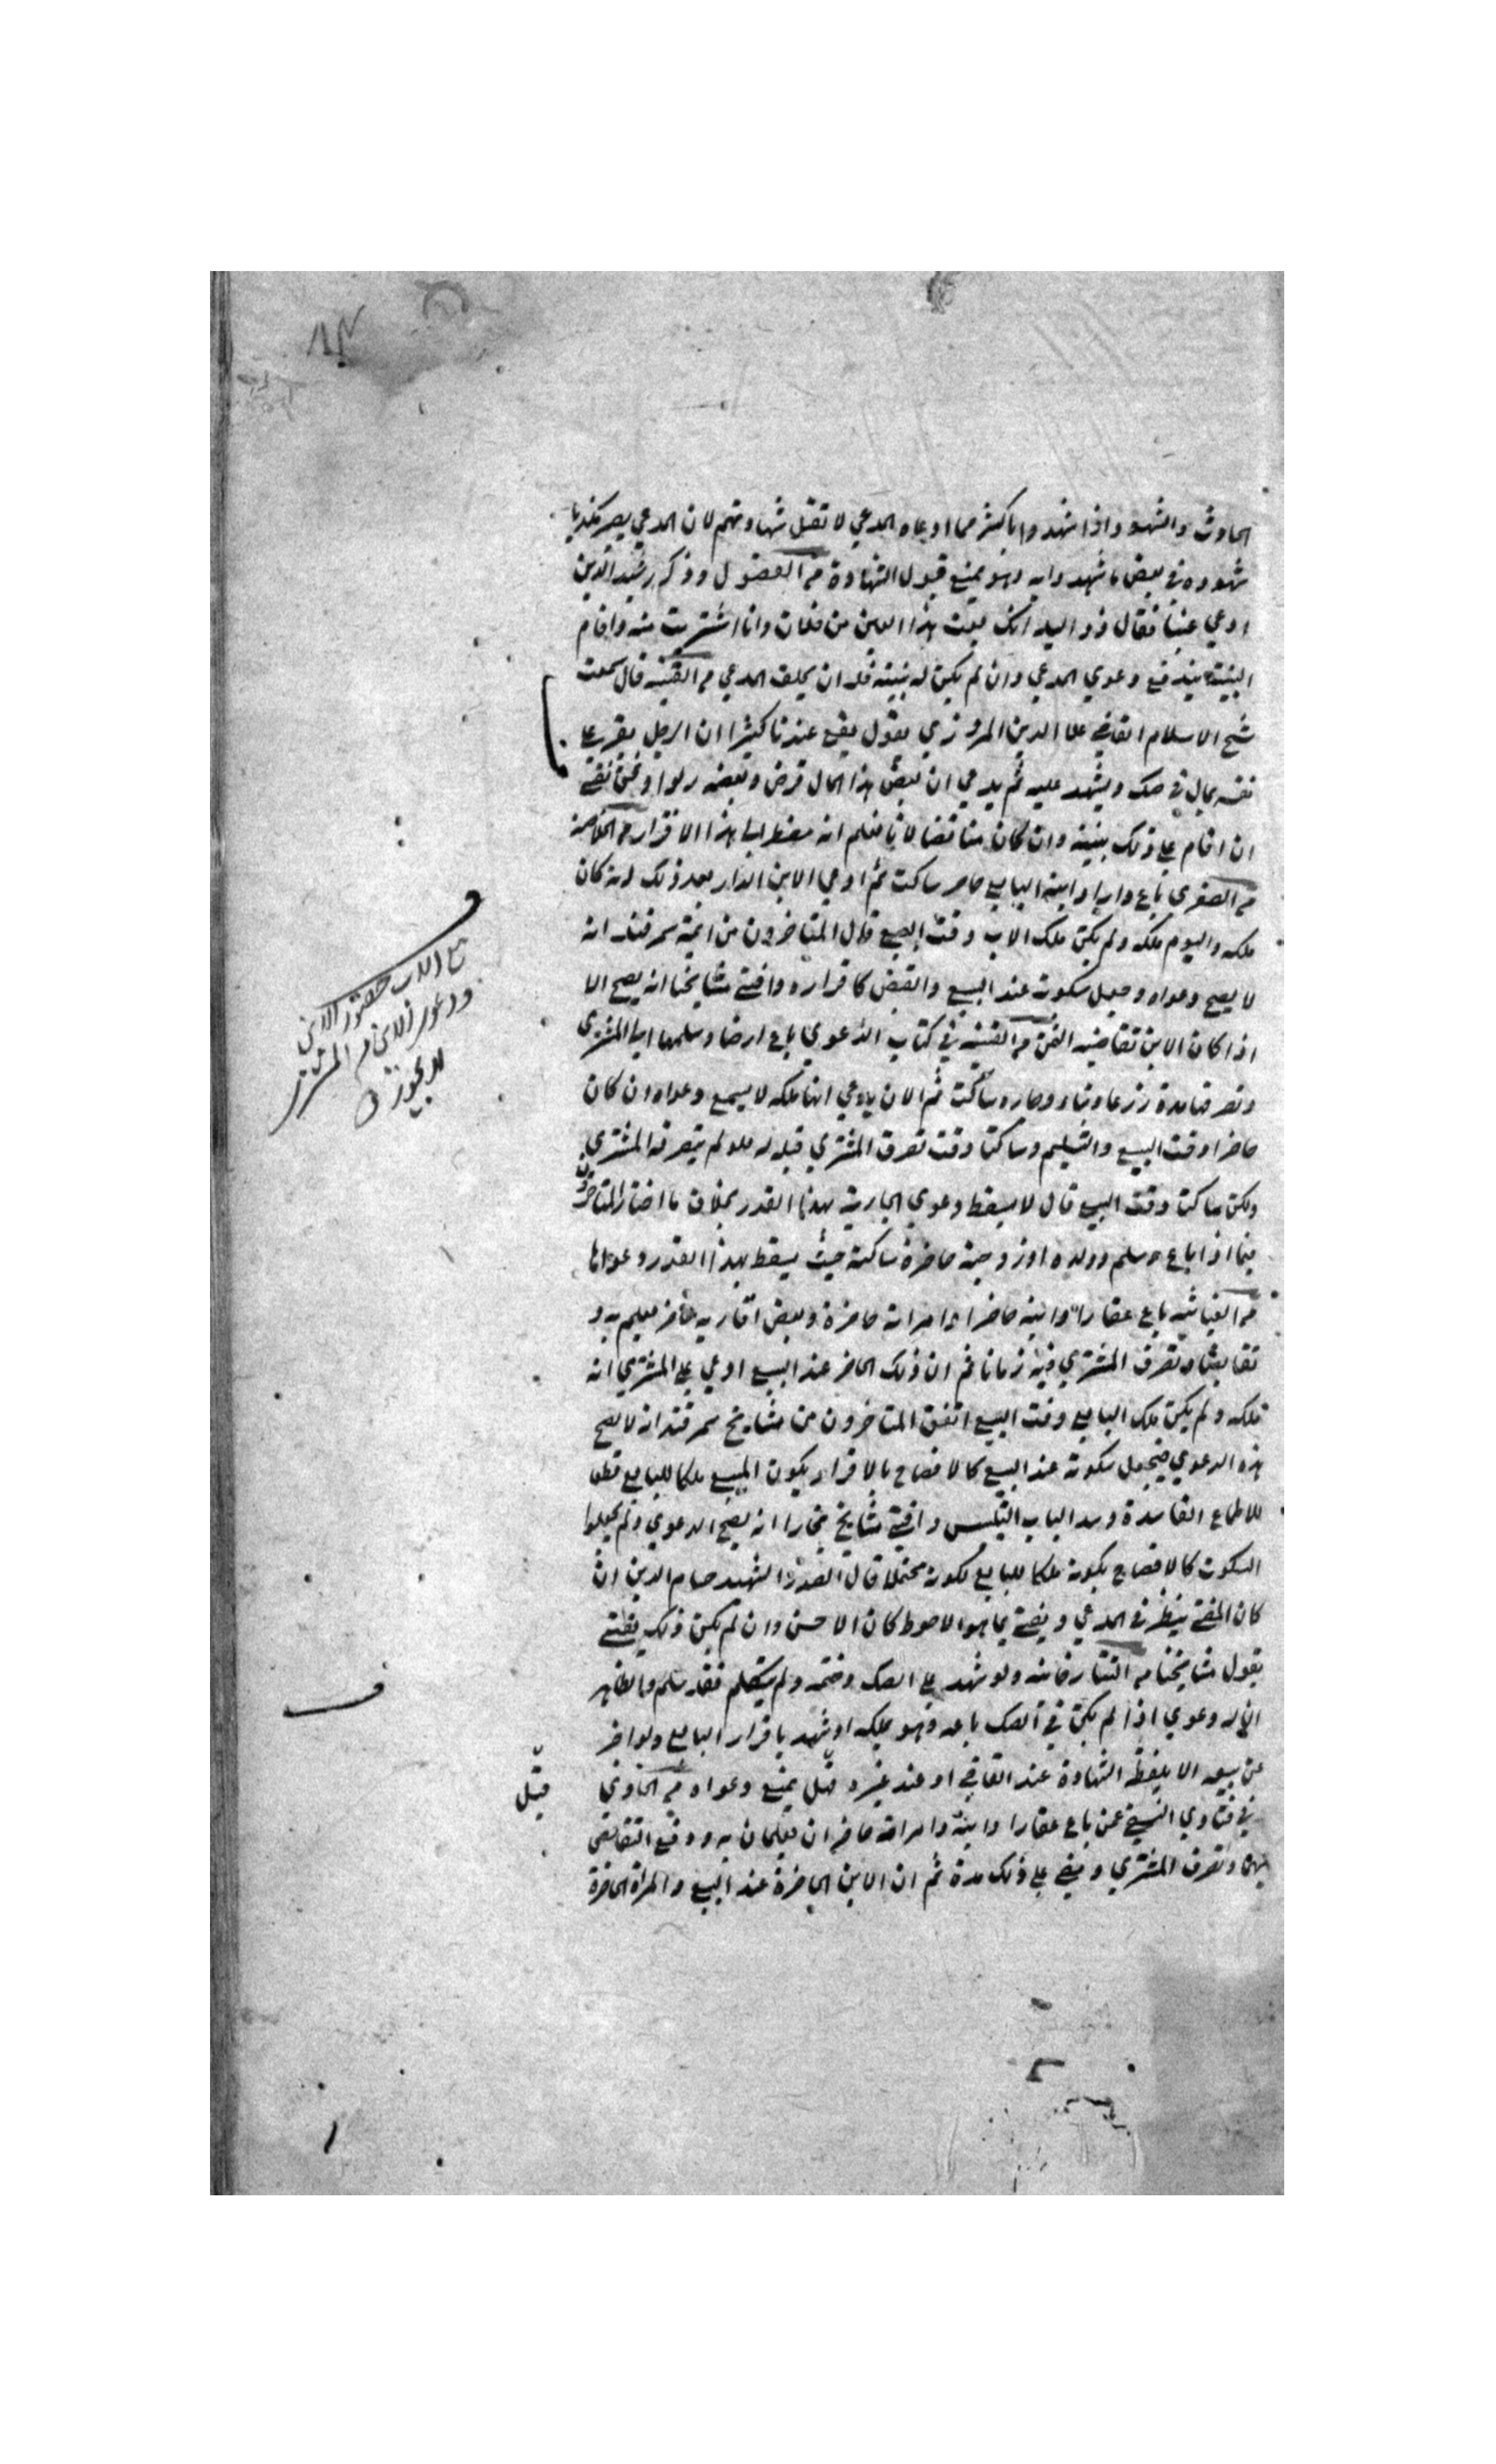 الحادث والشهود اذا شهدوا باكثر مما ادعاه المدعي لا تقبل شهادتهم لان المدعي يصير مكذبا
شهوده في بعض ما شهدوا به وهو يمنع قبول الشهادة من الفصول وذكر رشيد الدين
ادعي عينا فقال ذو اليد انك بعت هذا العين من فلان وانا اشتريت منه واقام
البينة يندفع دعوي المدعي وان لم يكن له بينة فله ان يحلف المدعي من القنية قال سمعت
شيخ الاسلام القاضي علا الدين المروزي يقول يقع عندنا كثيرا ان الرجل يقر علي
نفسه بمال في صك ويشهد عليه ثم يدعي ان بعض هذا المال قرض وبعضه ربوا ونحن نفتي
ان اقام علي ذلك بينة وان كان متناقضا لانا نعلم انه مضطر الي هذا الاقرار من الخلاصة
من الصغري باع دارا وابنه البايع حاضر ساكت ثم ادعي الابن الدار بعد ذلك انه كان
ملكه واليوم ملكه ولم يكن ملك الاب وقت البيع قال المتاخرون من ائمة سمرقند انه
لا يصح دعواه وجعل سكوته عند البيع والقبض كاقراره وافتي مشايخنا انه يصح الا
اذا كان الابن تقاضيه الثمن من القنية في كتاب الدعوي باع ارضا وسلمها الي المشتري
وتصرفها مدة زرعا وبناء وجاره ساكت ثم الان يدعي انها ملكه لا يسمع دعواه ان كان
حاضرا وقت البيع والتسليم وساكتا وقت تصرف المشتري قبله له فلو لم يتصرفه المشتري
ولكن ساكتا وقت البيع قال لا يسقط دعوي الجار به بهذا القدر بخلاف ما اختار المتاخرون
فيما اذا باع وسلم وولده او زوجته حاضرة ساكتة حيث يسقط بهذا القدر دعواها
من الغياثيه باع عقارا وابنه حاضرا وامراته حاضرة وبعض اقاربه حاضر يعلم به و
تقابضا وتصرف المشتري فيه زمانا ثم ان ذلك الحاضر عند البيع ادعي علي المشتري انه
ملكه ولم يكن ملك البايع وقت البيع اتفق المتاخرون من مشايخ سمرقند انه لا يصح
هذه الدعوي فيجعل سكوته عند البيع كالافصاح بالاقرار بكون المبيع ملكا للبايع قطعا
للاطماع الفاسدة وسد الباب التلبيس وافتي مشايخ بخارا انه يصح الدعوي ولم يجعلوا
السكوت كالافصاح بكونه ملكا للبايع لكونه محتملا قال الصدر الشهيد حسام الدين ان
كان المفتي ينظر في المدعي ويفتي بما هو الاحوط كان الاحسن وان لم يكن ذلك يفتي
بقول مشايخنا من التتارخانيه ولو شهد علي الصك وختمه ولم يتكلم فقد سلم
انه له دعوي اذا لم يكن في الصك باعه وهو يملكه او شهد باقرار البايع ولو اخبر
عن بيعه الا بلفظ الشهادة عند القاضي او عند غيره قيل يمنع دعواه من الحاوي
في فتاوي النسفي عمن باع عقارا وابنه وامراته حاضران يعلمان به ووقع التقابض
بينهما وتصرف المشتري ومضي علي ذلك مدة ثم ان الابن الحاضرة عند البيع والمراة الحاضرة
بيع الاب بحضور الابن
ودعوي الابن من المشتري
لا يجوز
قبل